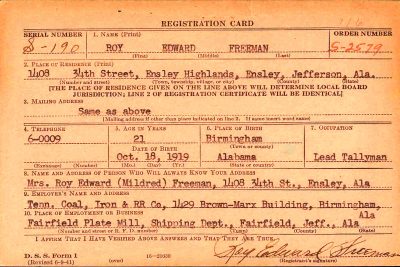 REGISTRATION CARD
SERIAL NUMBER 1. NAME (Print) ORDER NUMBER
S-190 ROY EDWARD FREEMAN S-2579
(First) (Middle) (Last)
2. PLACE OF RESIDENCE (Print)
1408 34th Street, Ensley Highlands, Ensley, Jefferson, Ala.
(Number and street) (Town, township, village, or city) (County) (State)
[THE PLACE OF RESIDENCE GIVEN ON THE LINE ABOVE WILL DETERMINE LOCAL BOARD
JURISDICTION; LINE 2 OF REGISTRATION CERTIFICATE WILL BE IDENTICAL]
3. MAILING ADDRESS
Same as above
[Mailing address if other than place indicated on line 2. If same insert word same]
4. TELEPHONE 5. AGE IN YEARS 6. PLACE OF BIRTH 7. OCCUPATION
6-0009 21 Birmingham
DATE OF BIRTH (Town or county)
Oct. 18, 1919 Alabama Lead Tallyman
(Exchange) (Number) (Mo.) (Day) (Yr.) (State or country)
8. NAME AND ADDRESS OF PERSON WHO WILL ALWAYS KNOW YOUR ADDRESS
Mrs. Roy Edward (Mildred) Freeman, 1408 34th St., Ensley, Ala
9. EMPLOYER'S NAME AND ADDRESS
Tenn. Coal, Iron & RR Co, 1429 Brown-Marx Building, Birmingham,
10. PLACE OF EMPLOYMENT OR BUSINESS Ala
Fairfield Plate Mill, Shipping Dept., Fairfield, Jeff., Ala
(Number and street or R. F. D. number) (Town) (County) (State)
I AFFIRM THAT I HAVE VERIFIED ABOVE ANSWERS AND THAT THEY ARE TRUE.
D. S. S. Form 1 Roy Edward Freeman
(Revised 6-9-41) (Registrant's signature)